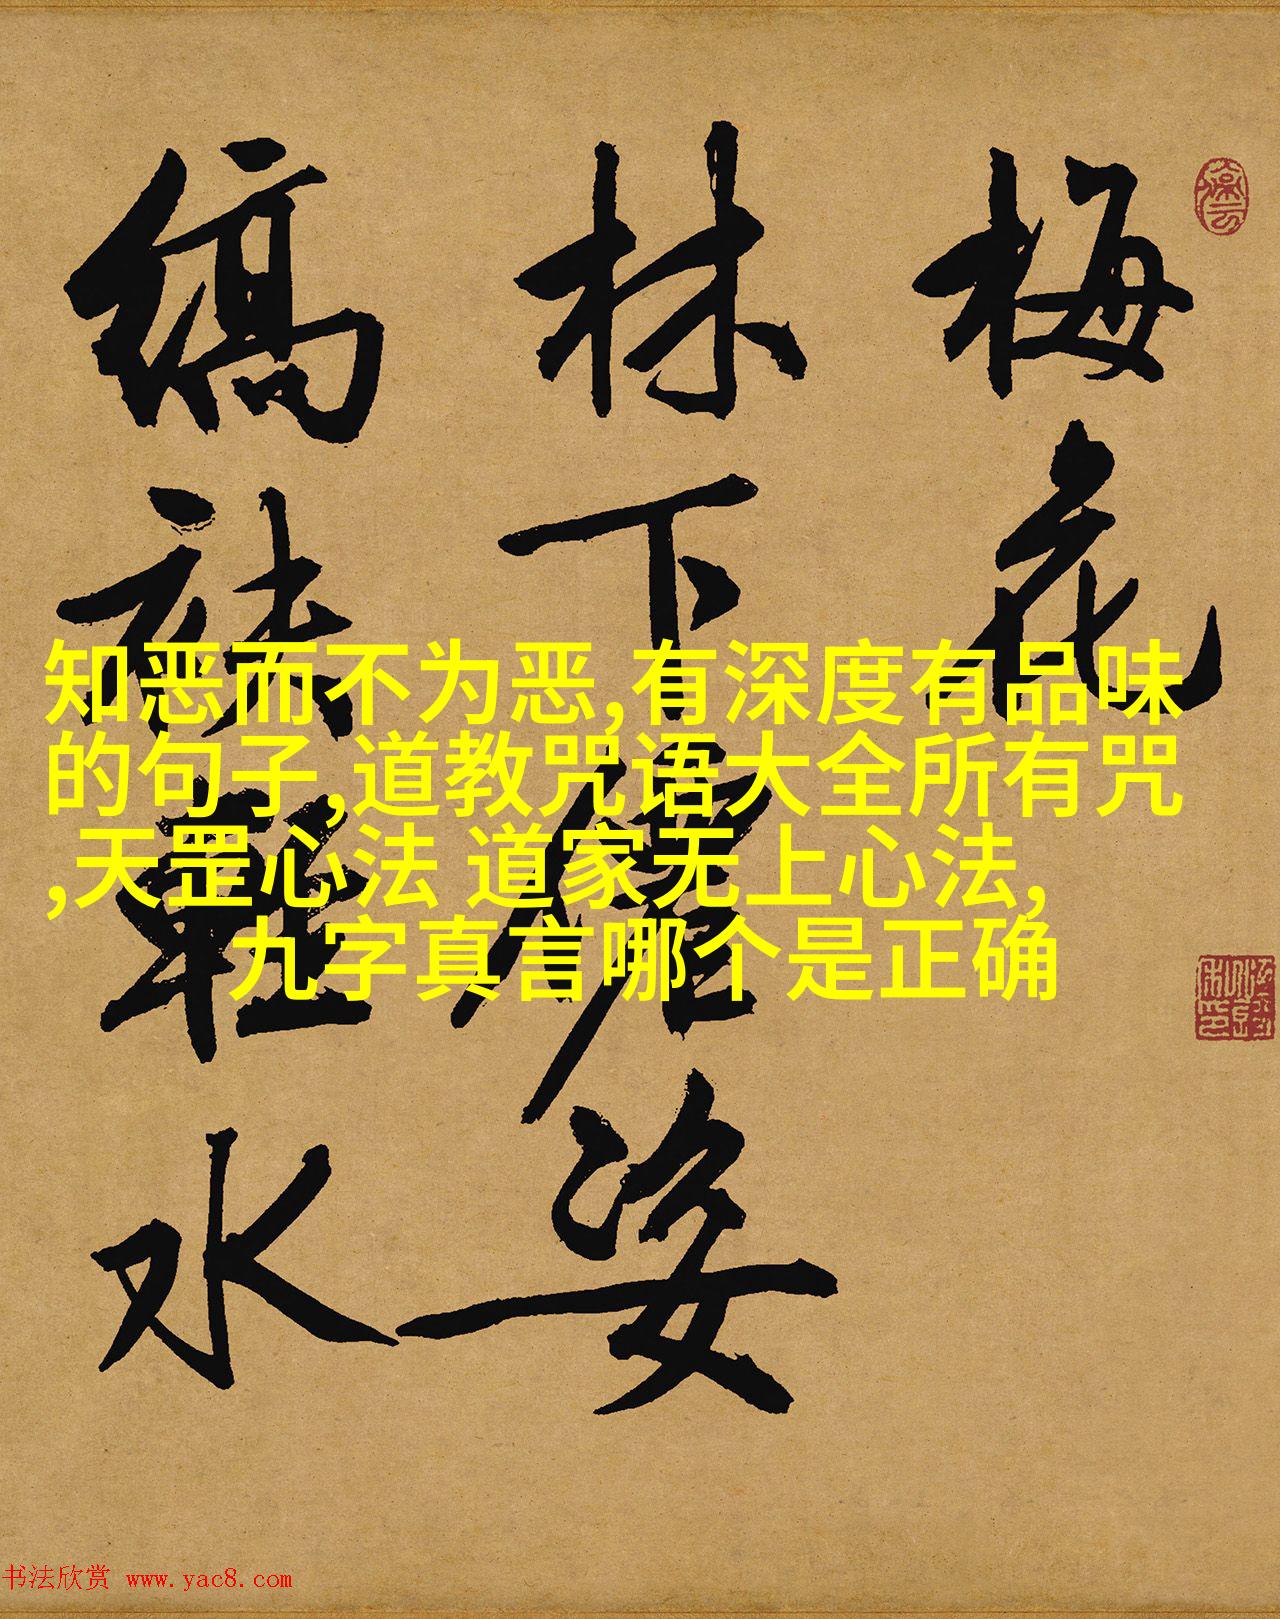 梅花
林下仙姿
缟袂轻水
知恶而不为恶,有深度有品味
的句子,道教咒语大全所有咒
,天罡心法 道家无上心法,
九字真言哪个是正确
书法欣赏 www.yac8.com